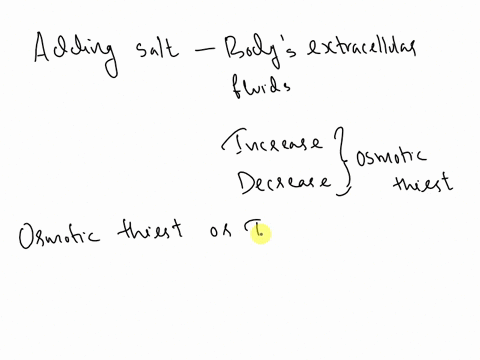 Adding salt – Body's extracellular
fluids
Increase
Decrease } osmotic
thirst
Osmotic thirst or I